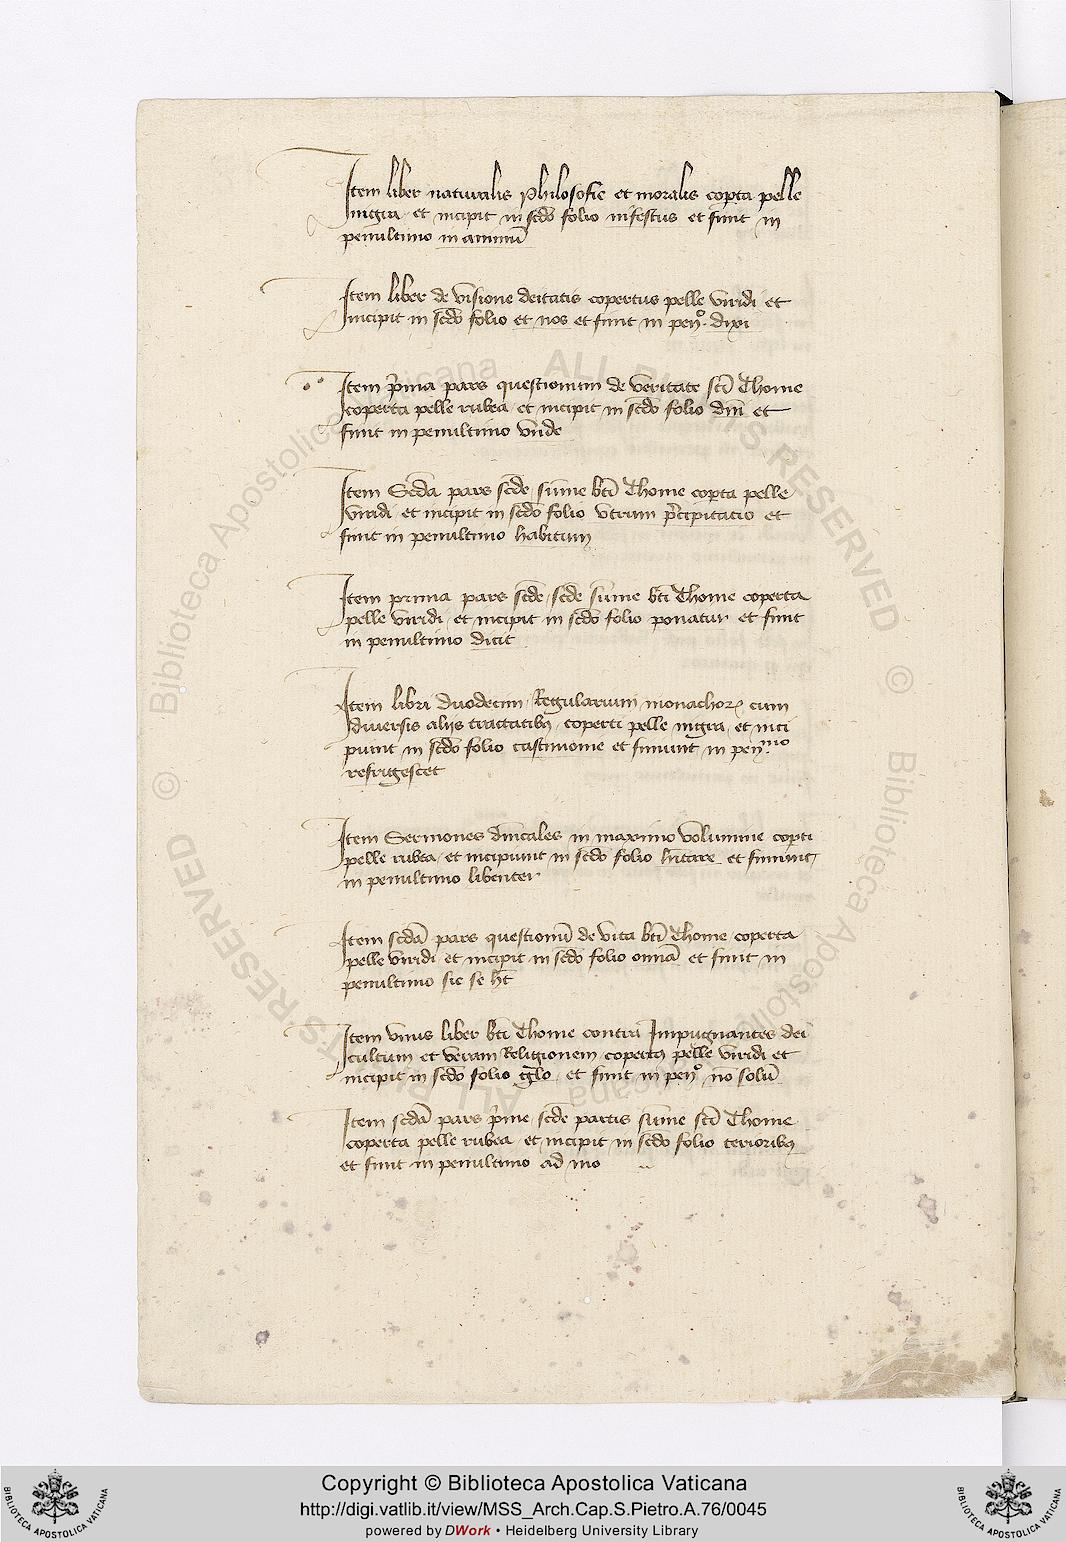 Item liber naturalis Philosofie et moralis cop̱ta pelle
nigra et incipit in scd̄o folio infestus et finit in
penultimo in animū
Item liber de visione deitatis copertus pelle viridi et
incipit in scd̄o folio et nos et finit in penº. dixi
Item p̄ma pars questionum de veritate sc̄i Thome
coperta pelle rubea et incipit in scd̄o folio dn̄i et
finit in penultimo vnde
Item Scd̄a pars scd̄e sūme bt̄i Thome cop̱ta pelle
viridi et incipit in scd̄o folio vtrum p̄cipitatio et
finit in penultimo habitum
Item prima pars scd̄e scd̄e sūme bt̄i Thome coperta
pelle viridi et incipit in scd̄o folio ponatur et finit
in penultimo dicit
Item libri duodecim Regularium monachorꝝ cum
diuersis alijs tractatibꝫ coperti pelle nigra et inci
piunt in scd̄o folio castimonie et finiunt in penᵐᵒ
refrigescet
Item Sermones dn̄icales in maximo volumine cop̱ti
pelle rubea et incipiunt in scd̄o folio et finiunt
in penultimo libenter
Item scd̄a pars questionū de vita bt̄i Thome coperta
pelle viridi et incipit in scd̄o folio om̄ia et finit in
penultimo sic se hꝫt
Item vnus liber bt̄i Thome contra Impugnantes dei
cultum et veram Religionem copertꝰ pelle viridi et
incipit in scd̄o folio et finit in penº. nō solū
Item scd̄a pars p̄me scd̄e partis sūme sc̄i Thome
coperta pelle rubea et incipit in scd̄o folio terioribꝫ
et finit in penultimo ad mo
© Biblioteca Apostolica Vicana ALL RIGHTS RESERVED
© Biblioteca Apostolica Vaticana ALL RIGHTS RESERVED
Copyright © Biblioteca Apostolica Vaticana
http://digi.vatlib.it/view/MSS_Arch.Cap.S.Pietro.A.76/0045
powered by DWork • Heidelberg University Library
BIBLIOTECA APOSTOLICA VATICANA
BIBLIOTECA APOSTOLICA VATICANA